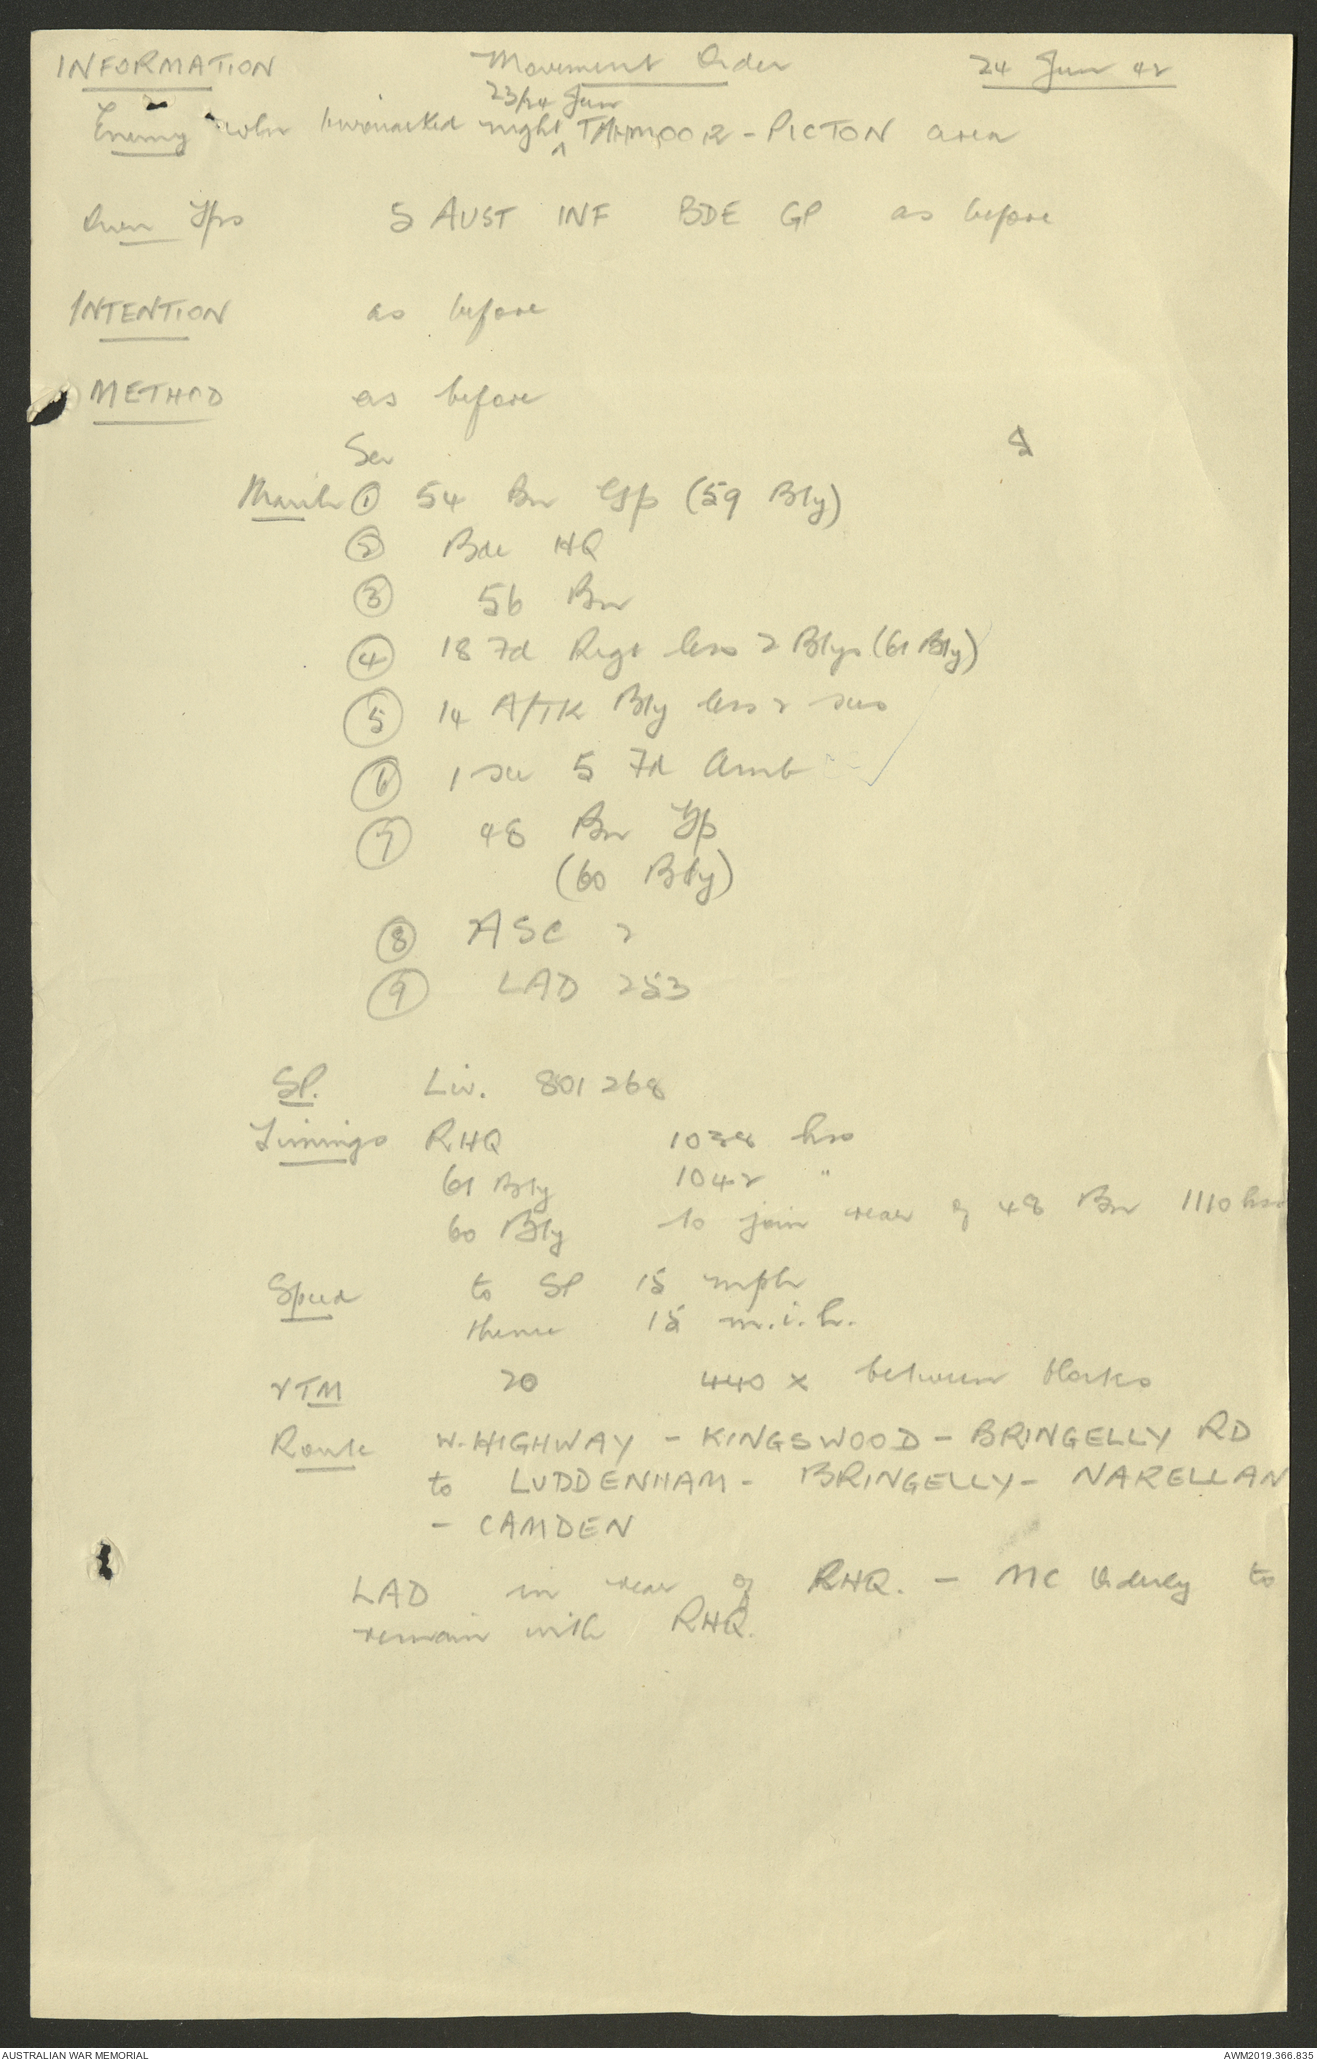 INFORMATION Movement Order 24 Jun 42
23/24 Jun
Enemy coln bivouacked night ^ TAHMOOR - PICTON area
Own Tps 5 AUST INF BDE GP as before
INTENTION as before
METHOD as before
Ser
March ① 54 Bn Gp (59 Bty)
② Bde HQ
③ 56 Bn
④ 18 Fd Regt less 2 Btys (61 Bty)
⑤ 14 A/TK Bty less 2 secs
⑥ 1 sec 5 Fd Amb
⑦ 48 Bn Gp
(60 Bty)
⑧ ASC 2
⑨ LAD 253
SP. Liv. 801268
Timings RHQ 1038 hrs
61 Bty 1042 "
60 Bty to join rear of 48 Bn 1110 hrs
Speed to SP 15 mph
thence 15 m.i.h.
VTM 20 440 x between blocks
Route W. HIGHWAY - KINGSWOOD - BRINGELLY RD
to LUDDENHAM - BRINGELLY - NARELLAN
- CAMDEN
LAD in rear of RHQ. - MC Orderly to
remain with RHQ.
AUSTRALIAN WAR MEMORIAL AWM2019.366.835